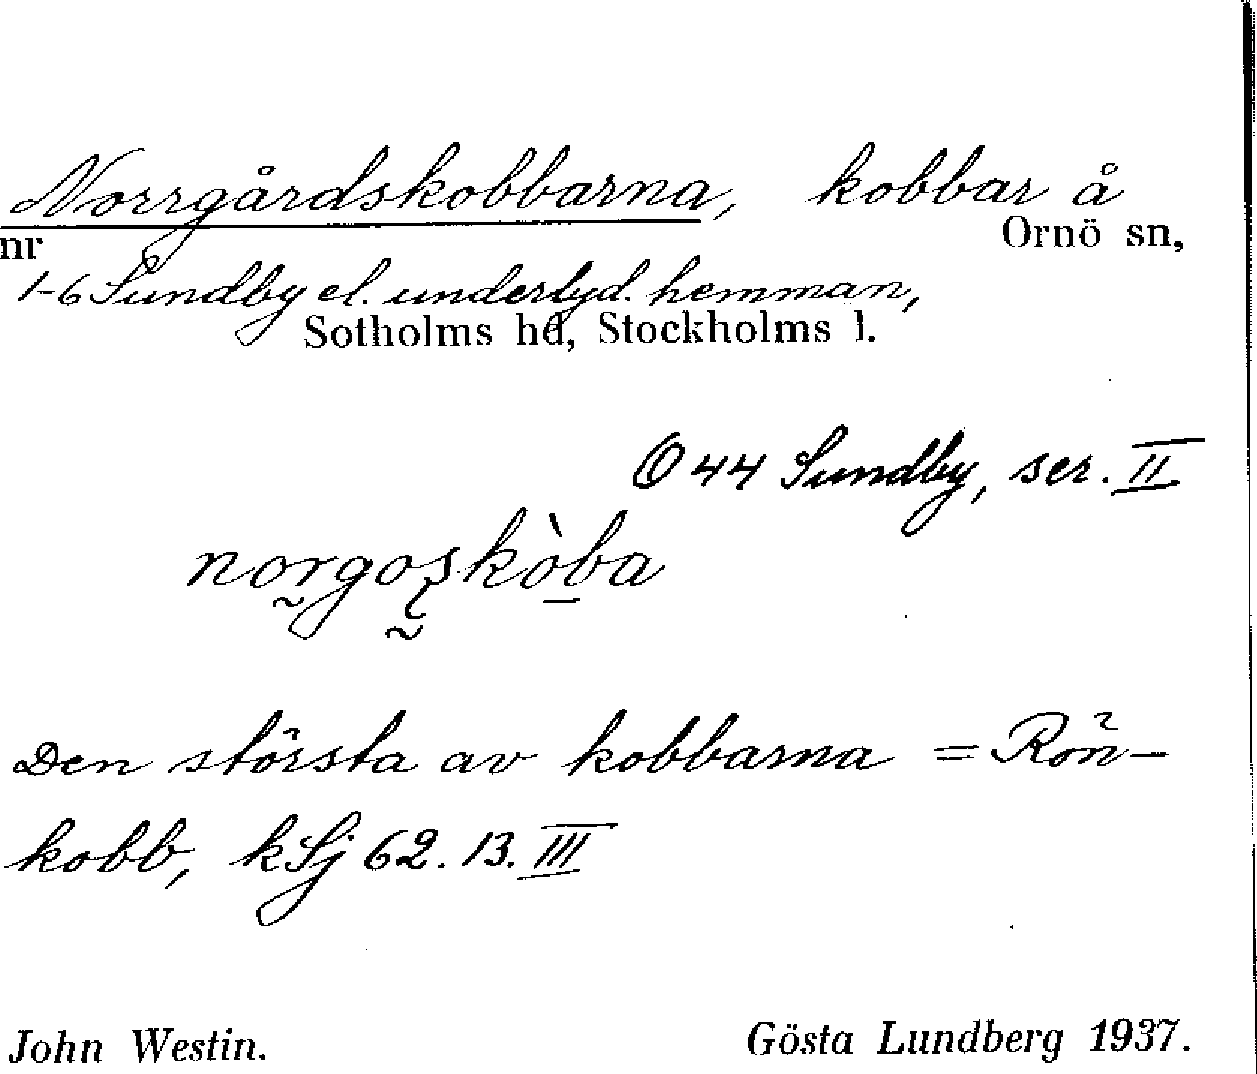 Norrgårdskobbarna, kobbar å
nr Ornö sn,
1-6 Sundby el. underlyd. hemman,
Sotholms hd, Stockholms l.
Ö 44 Sundby, ser. II
norgoskòba
Den största av kobbarna = Rön-
kobb, kSj 62. 13. III
John Westin. Gösta Lundberg 1937.